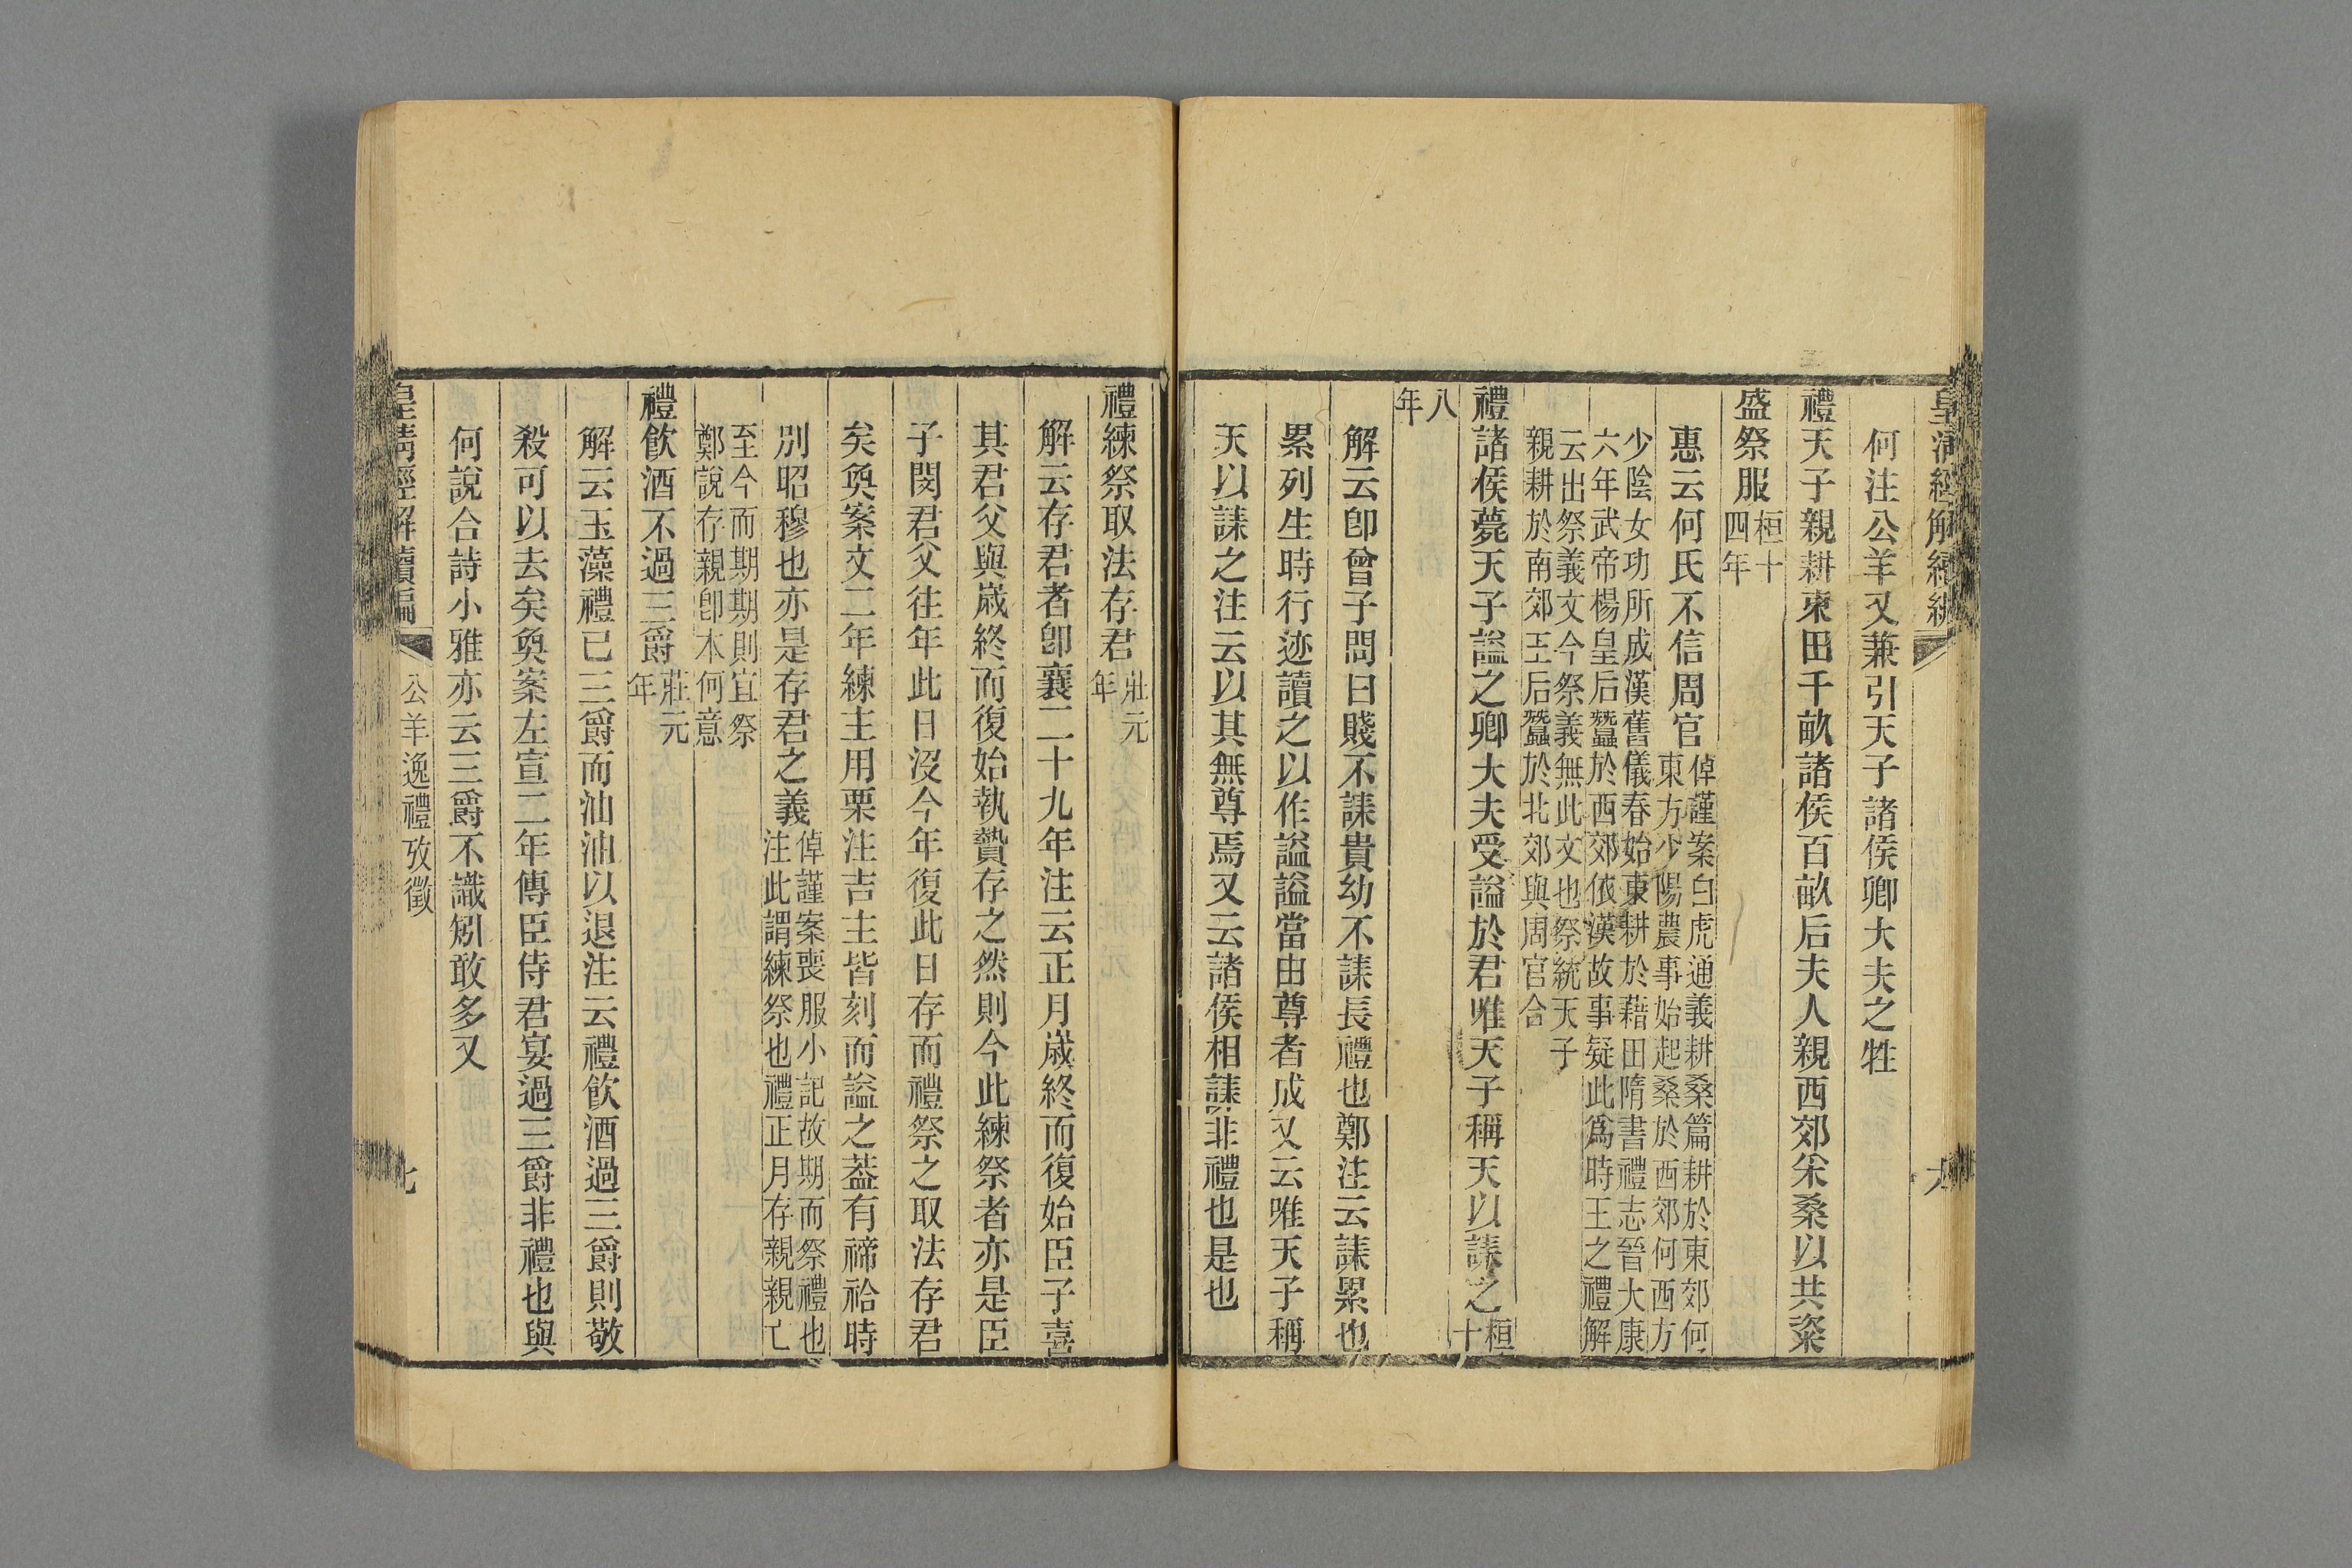 皇清經解續編
何注公羊又兼引天子諸侯卿大夫之牲
禮天子親耕東田千畝諸侯百畝后夫人親西郊采桑以共粢
盛祭服桓十四年
惠云何氏不信周官倬謹案白虎通義耕桑篇耕於東郊何東方少陽農事始起桑於西郊何西方
少陰女功所成漢舊儀春始東耕於藉田隋書禮志晉大康六年武帝楊皇后蠶於西郊依漢故事疑此爲時王之禮解
云出祭義文今祭義無此文也祭統天子親耕於南郊王后蠶於北郊與周官合
禮諸侯薨天子謚之卿大夫受謚於君唯天子稱天以誄之桓十
八年
解云卽曾子問曰賤不誄貴幼不誄長禮也鄭注云誄累也
累列生時行迹讀之以作謚謚當由尊者成又云唯天子稱
天以誄之注云以其無尊焉又云諸侯相誄非禮也是也
禮練祭取法存君莊元年
解云存君者卽襄二十九年注云正月歲終而復始臣子喜
其君父與歲終而復始執贄存之然則今此練祭者亦是臣
子閔君父往年此日沒今年復此日存而禮祭之取法存君
矣奐案文二年練主用栗注吉主皆刻而謚之葢有禘祫時
別昭穆也亦是存君之義倬謹案喪服小記故期而祭禮也注此謂練祭也禮正月存親親亡
至今而期期則宜祭鄭說存親卽本何意
禮飮酒不過三爵莊元年
解云玉藻禮已三爵而油油以退注云禮飮酒過三爵則敬
殺可以去矣奐案左宣二年傳臣侍君宴過三爵非禮也與
何說合詩小雅亦云三爵不識矧敢多又
皇清經解續編 公羊逸禮攷徵